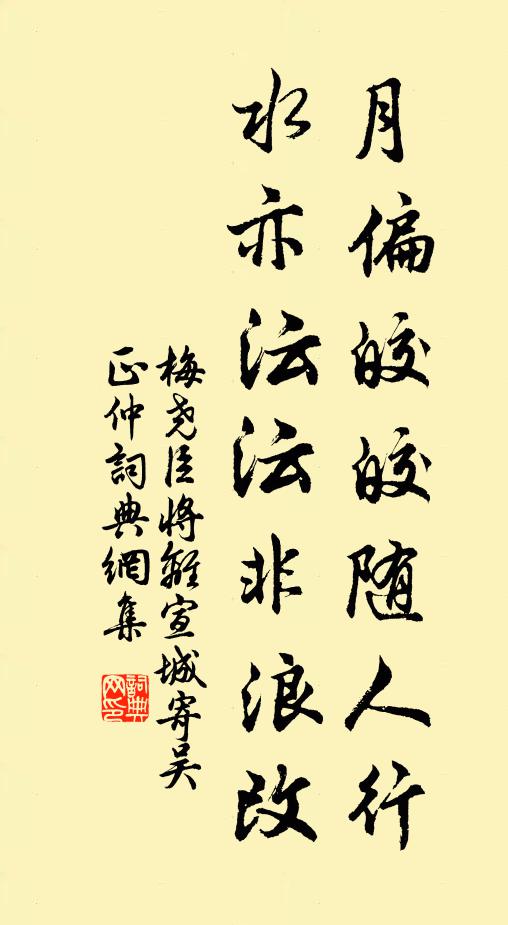 月偏皎皎随人行
水亦沄沄非浪改
梅尧臣将離宣城寄吴
正仲詞典網集
詞典
网印